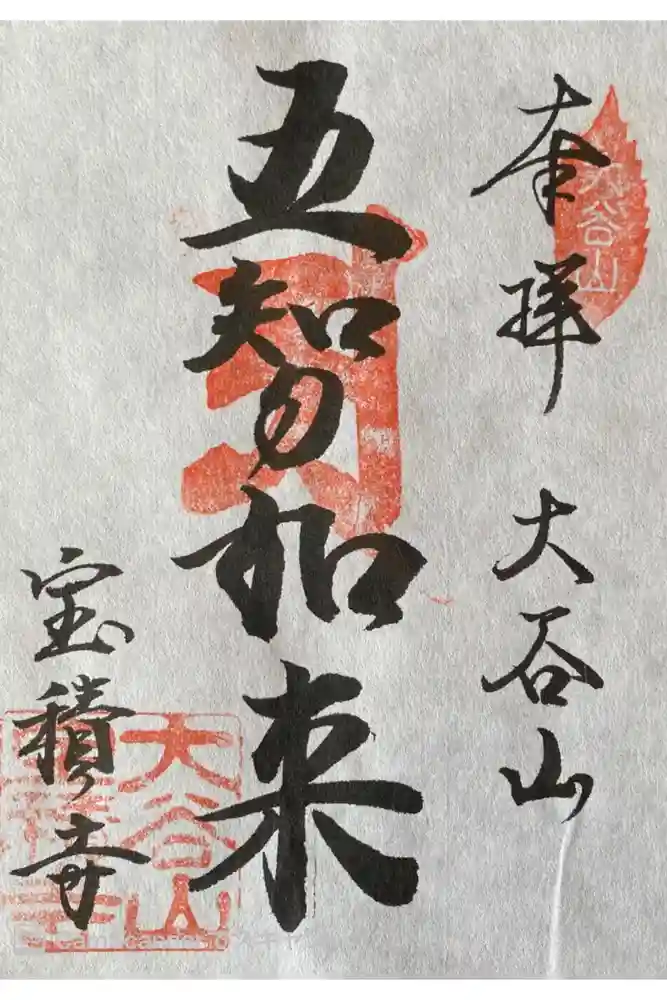 奉拝 大谷山
大谷山
五智如来
宝積寺
大谷山